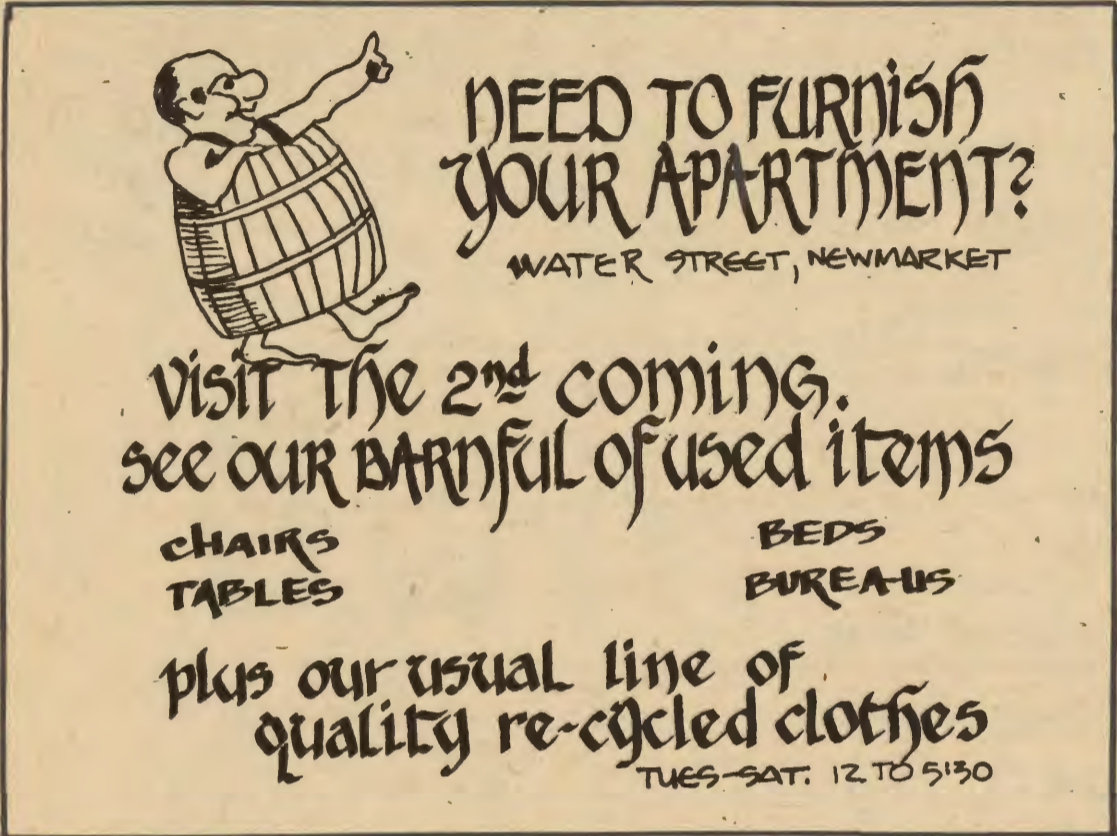 NEED TO FURNISH
YOUR APARTMENT?
WATER STREET, NEWMARKET
visit the 2nd coming.
see our BARNful of used items
CHAIRS
BEDS
TABLES
BUREAUS
plus our usual line of
quality re-cycled clothes
TUES-SAT. 12 TO 5:30